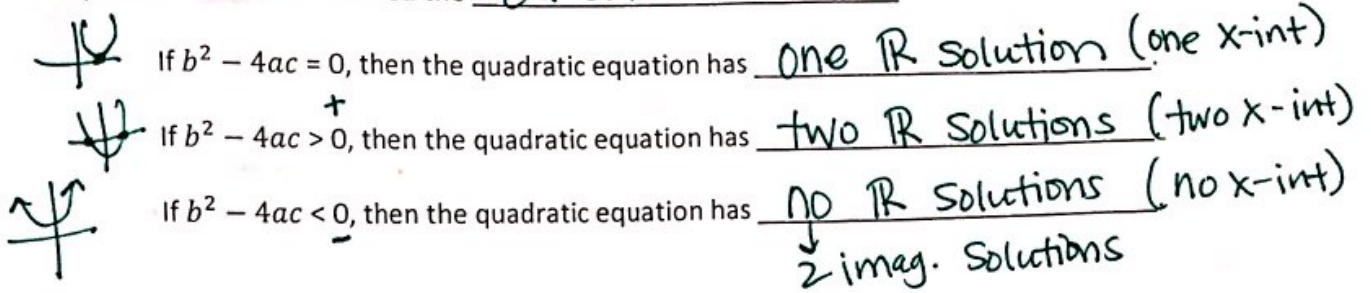 If b² – 4ac = 0, then the quadratic equation has one ℝ solution (one x-int)
+
If b² – 4ac > 0, then the quadratic equation has two ℝ solutions (two x-int)
If b² – 4ac < 0, then the quadratic equation has no ℝ solutions (no x-int)
–
↓
2 imag. solutions